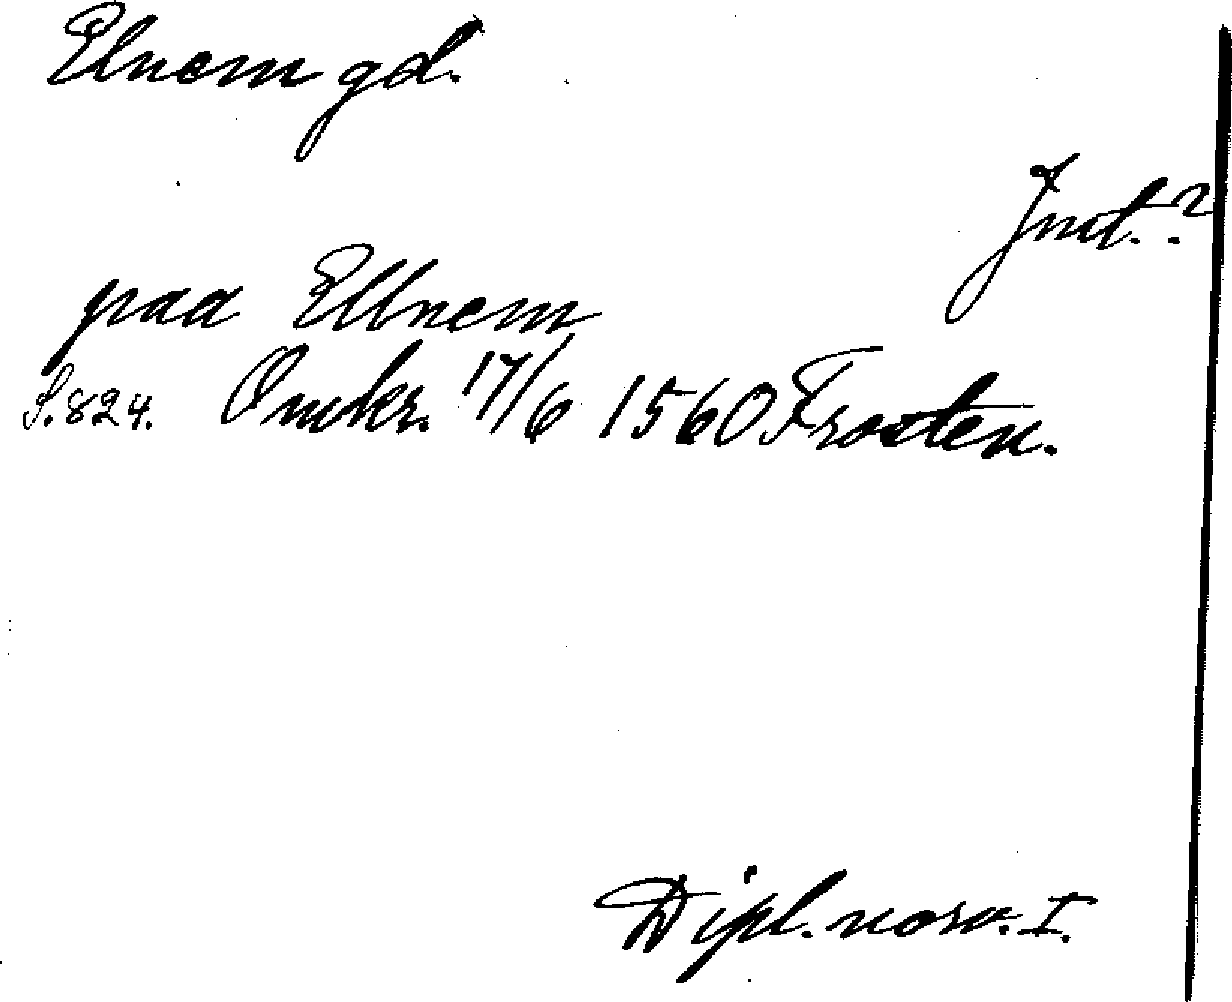 Elnem gd.
Jmt.?
paa Ellnem
S. 824. Omkr. 17/6 1560 Frosten.
Dipl. norv. I.